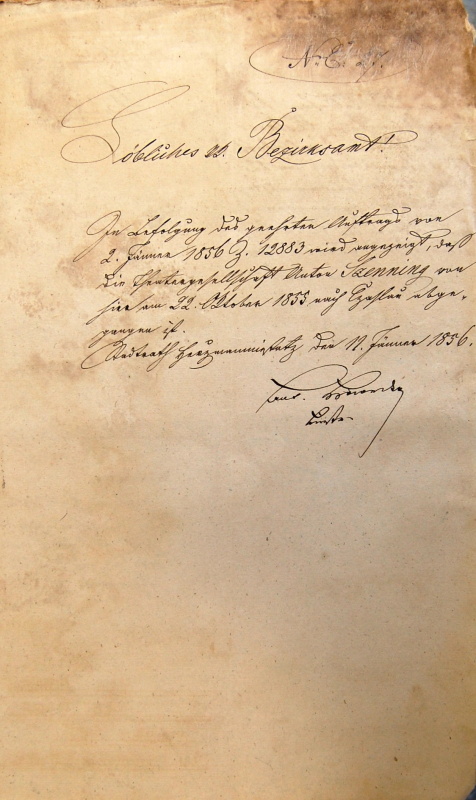 N. E. 27.
Löbliches kk. Bezirksamt!
In Befolgung des geehrten Auftrags von
2. Jänner 1856 Z. 12883 wird angezeigt, daß
die Theatergesellschaft Anton Szenning von
hier am 22. Oktober 1855 nach Czaslau abge,
gangen ist.
Stadtrath Herzmanmiestetz den 11. Jänner 1856.